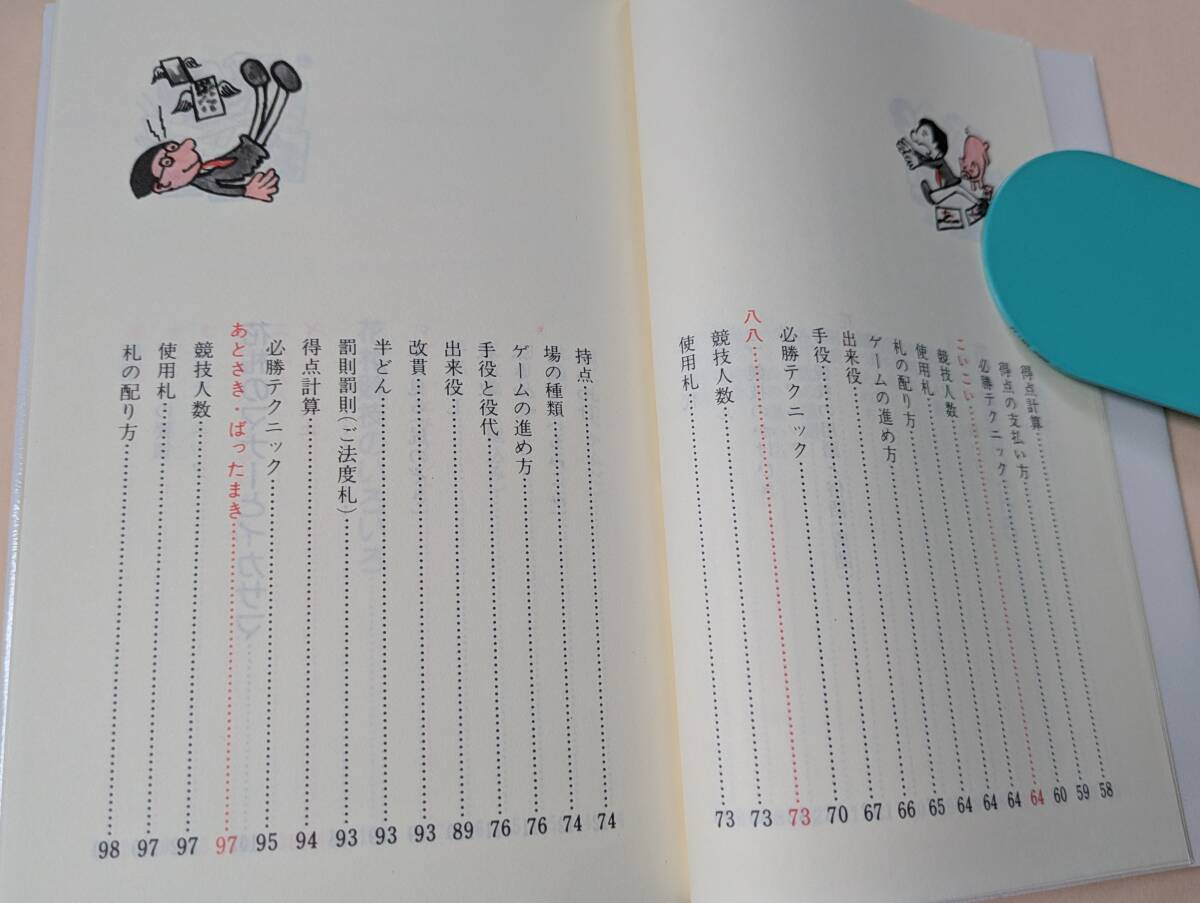 得点計算……58
得点の支払い方……59
必勝テクニック……60
こいこい……64
競技人数……64
使用札……64
札の配り方……64
ゲームの進め方……65
出来役……66
手役……67
必勝テクニック……70
八八……73
競技人数……73
使用札……73
持点……74
場の種類……74
ゲームの進め方……76
手役と役代……76
出来役……89
改貫……93
半どん……93
罰則罰則(ご法度札)……93
得点計算……94
必勝テクニック……95
あとさき・ばったまき……97
競技人数……97
使用札……97
札の配り方……98